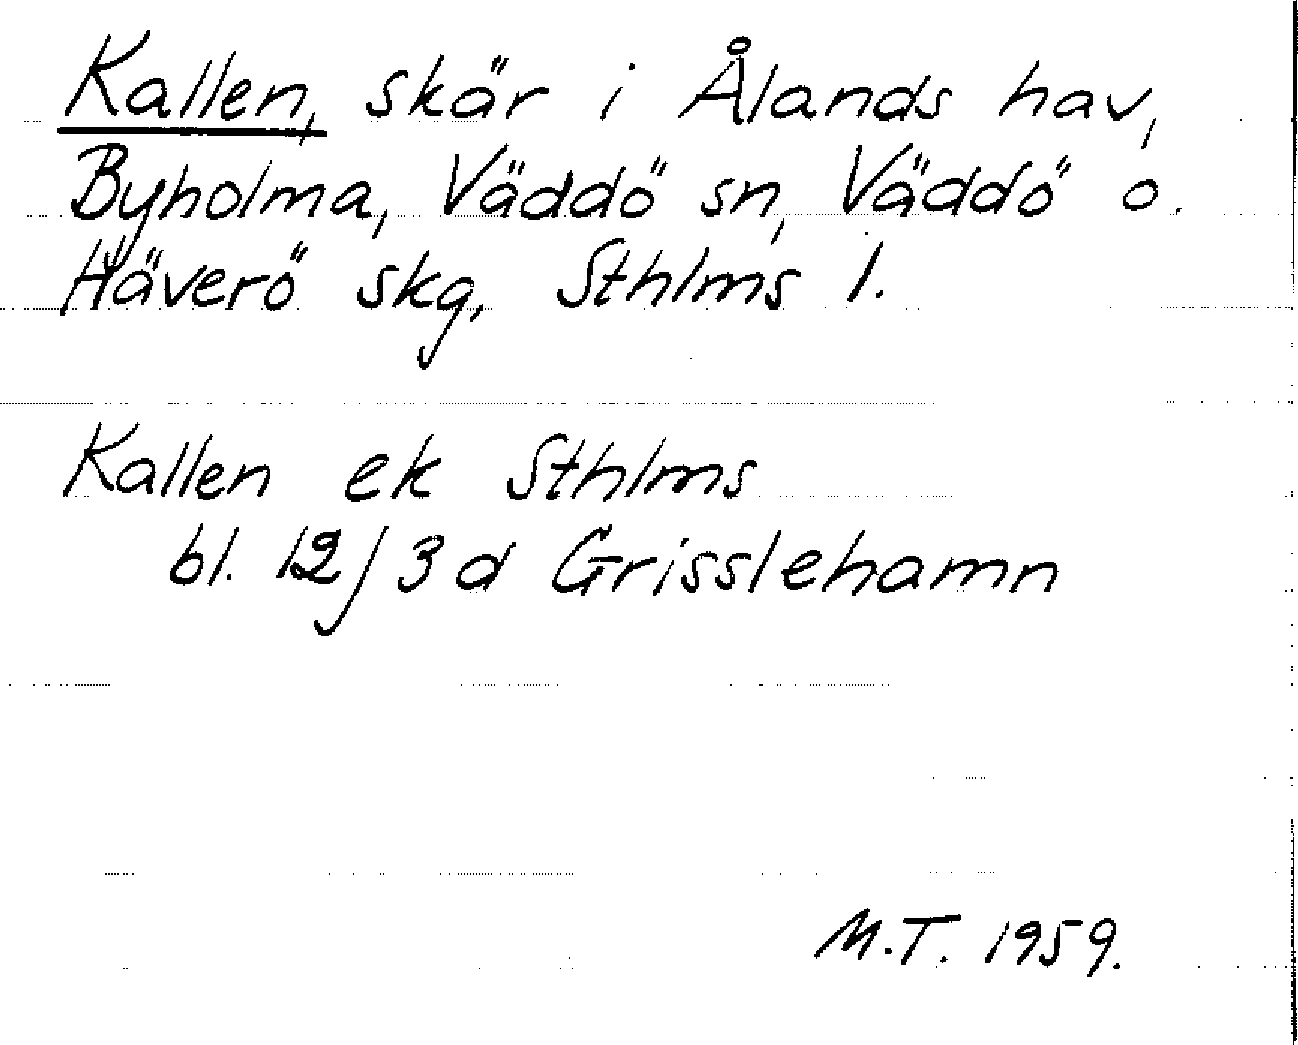 Kallen, skär i Ålands hav,
Byholma, Väddö sn, Väddö o.
Häverö skg, Sthlms l.
Kallen ek Sthlms
bl. 12/3d Grisslehamn
M.T. 1959.